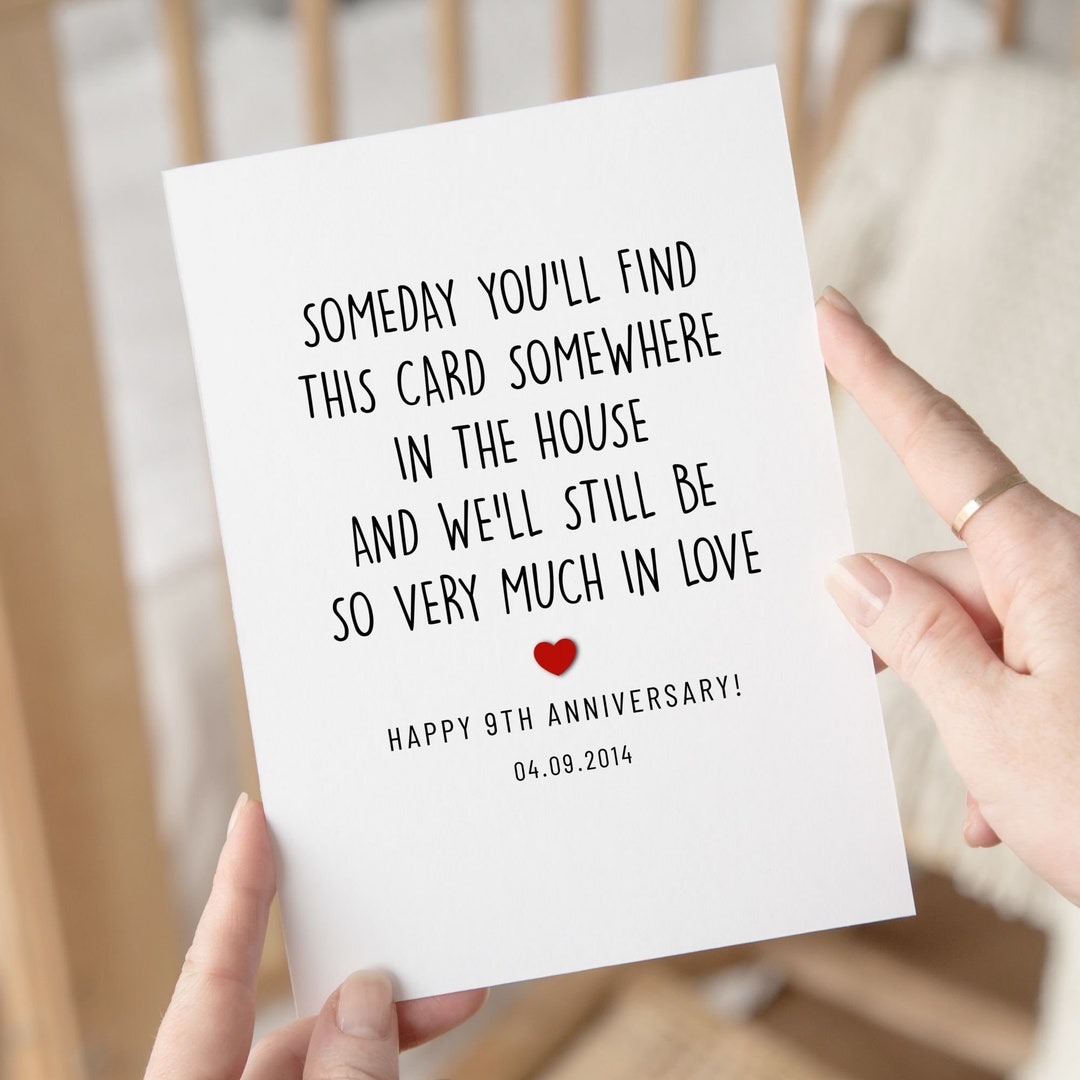 SOMEDAY YOU'LL FIND
THIS CARD SOMEWHERE
IN THE HOUSE
AND WE'LL STILL BE
SO VERY MUCH IN LOVE
HAPPY 9TH ANNIVERSARY!
04.09.2014